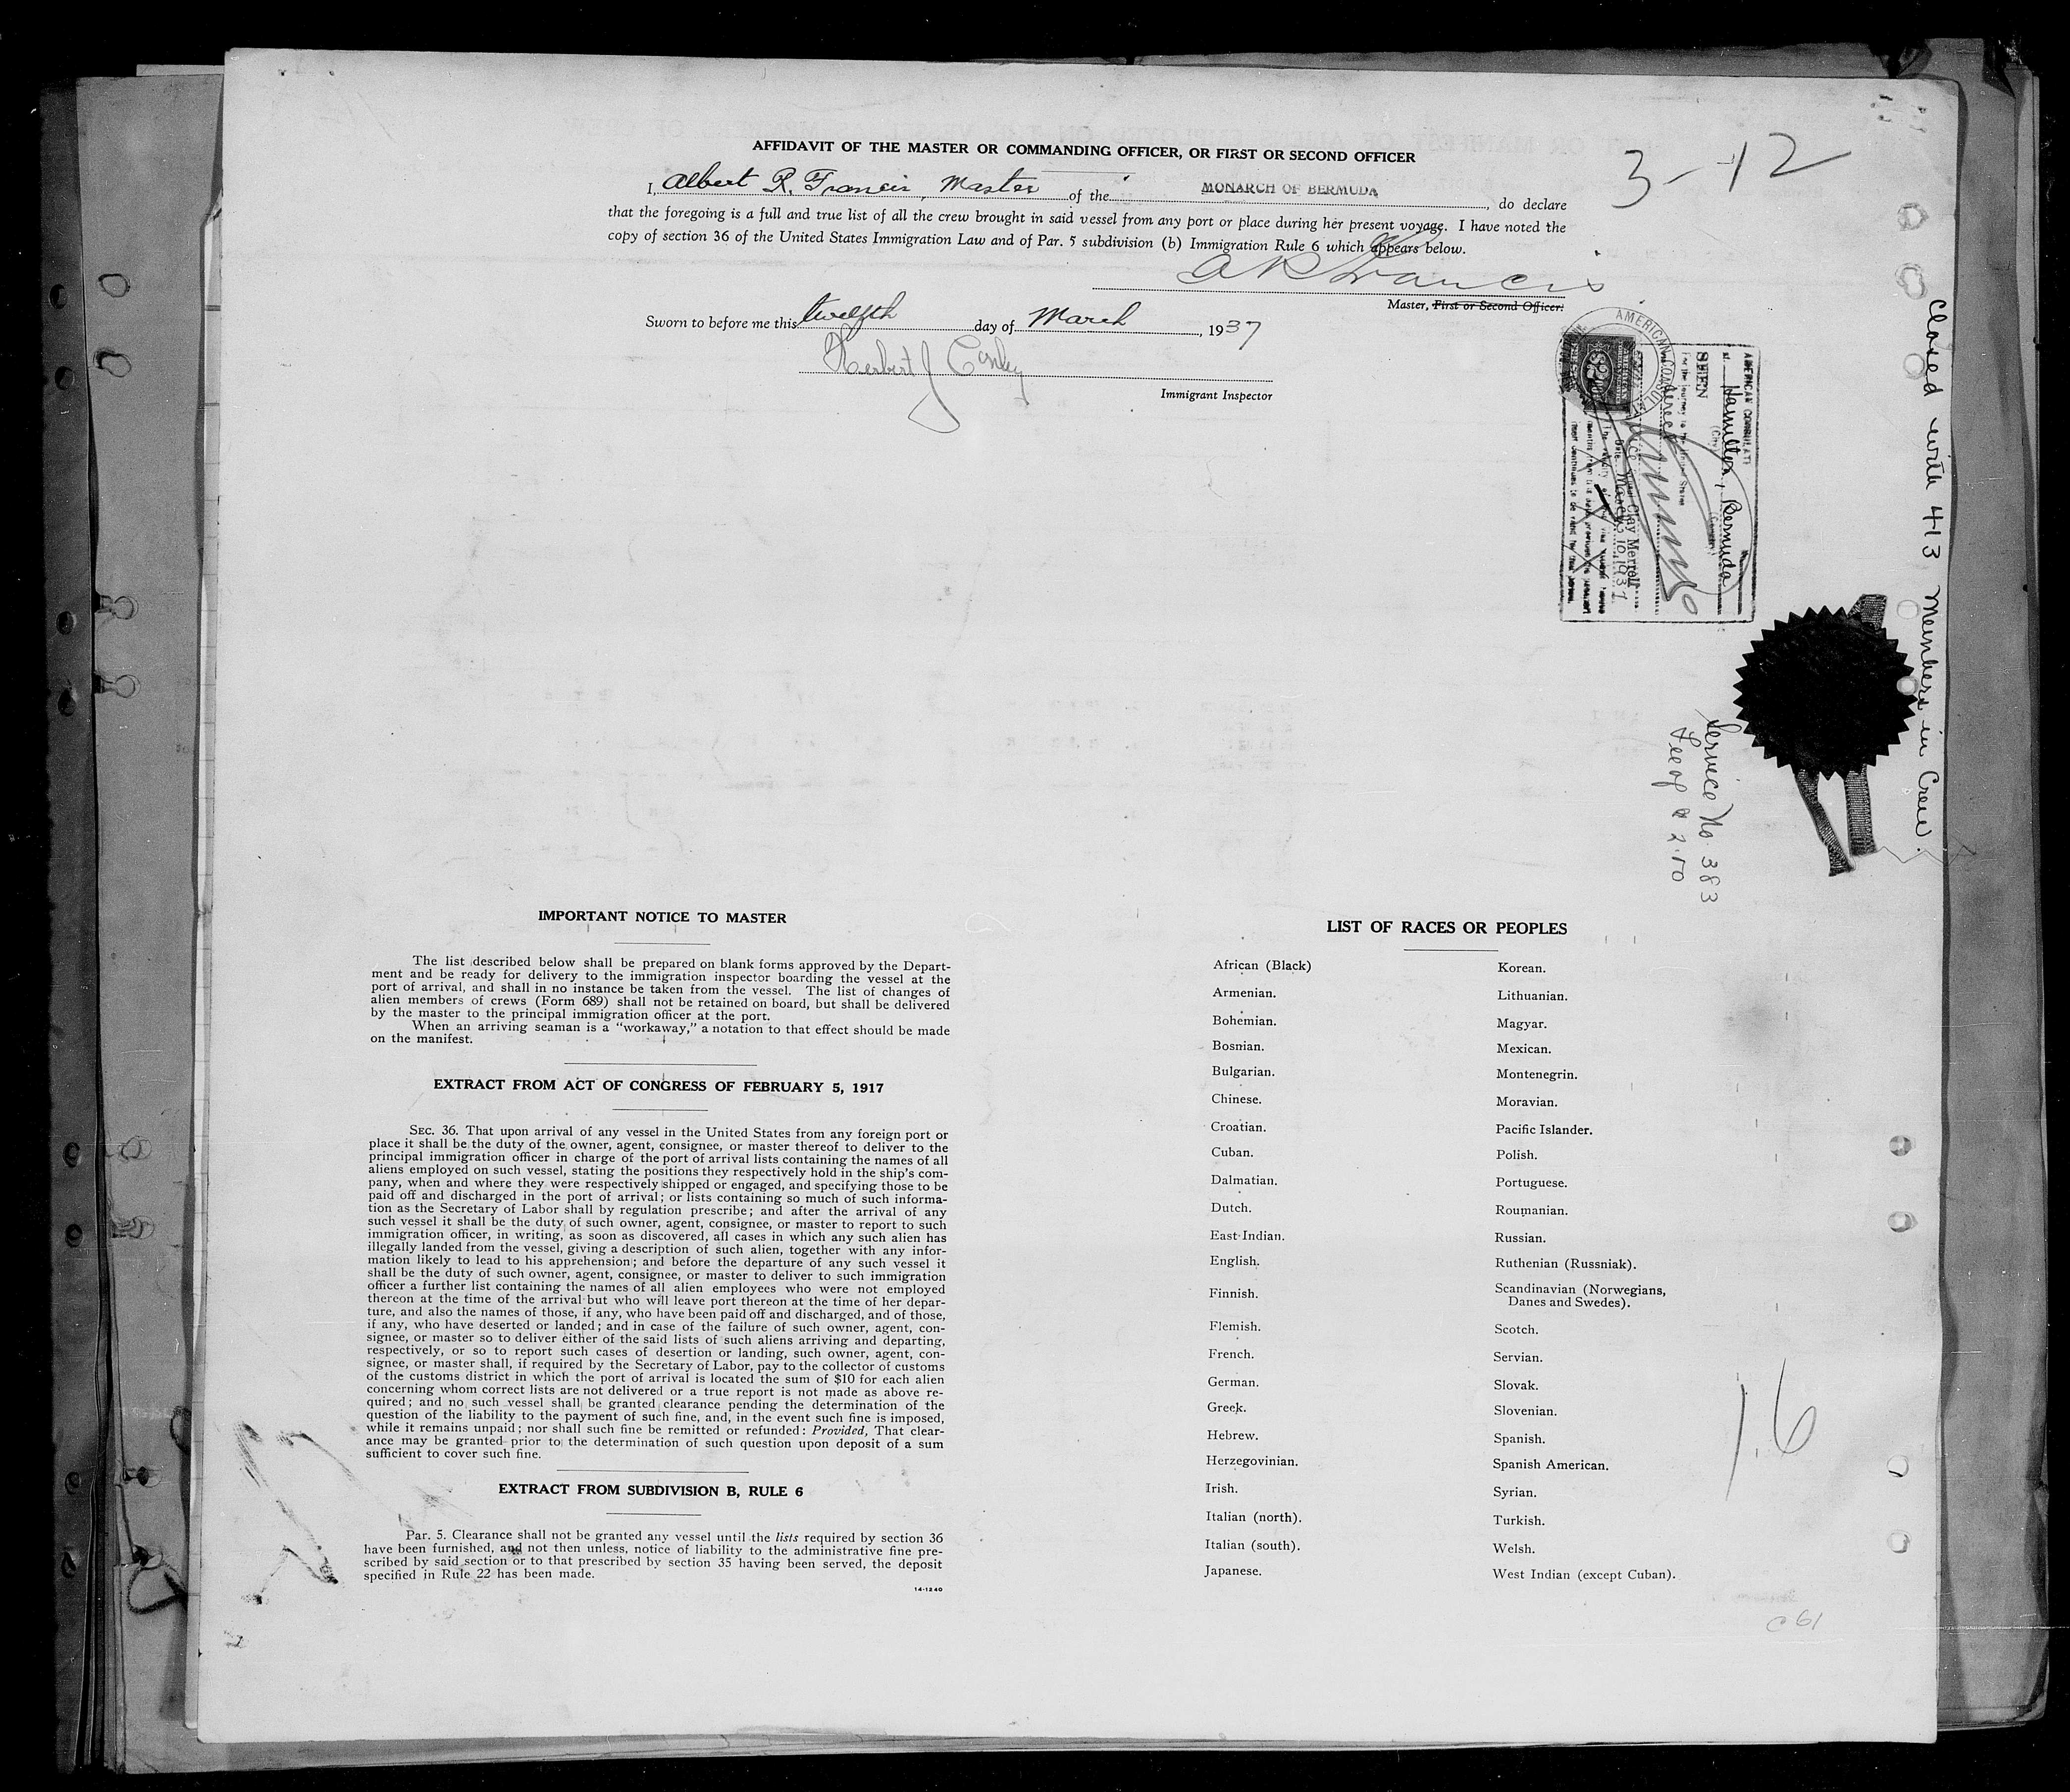 AFFIDAVIT OF THE MASTER OR COMMANDING OFFICER, OR FIRST OR SECOND OFFICER
3-12
I, Albert R. Francis, Master of the MONARCH OF BERMUDA, do declare
that the foregoing is a full and true list of all the crew brought in said vessel from any port or place during her present voyage. I have noted the
copy of section 36 of the United States Immigration Law and of Par. 5 subdivision (b) Immigration Rule 6 which appears below.
A R Francis
Master, First or Second Officer.
Sworn to before me this twelfth day of March, 1937
Herbert J
Immigrant Inspector
AMERICAN CONSULATE
at Hamilton, Bermuda
(City) (Country)
SEEN
For the journey to the United States
Vice Consul Clay Merrell
Date March 10, 1937
Closed with 413 Members in Crew.
Service No 383
Fee $ 2.50
IMPORTANT NOTICE TO MASTER
The list described below shall be prepared on blank forms approved by the Depart-
ment and be ready for delivery to the immigration inspector boarding the vessel at the
port of arrival, and shall in no instance be taken from the vessel. The list of changes of
alien members of crews (Form 689) shall not be retained on board, but shall be delivered
by the master to the principal immigration officer at the port.
When an arriving seaman is a "workaway," a notation to that effect should be made
on the manifest.
EXTRACT FROM ACT OF CONGRESS OF FEBRUARY 5, 1917
SEC. 36. That upon arrival of any vessel in the United States from any foreign port or
place it shall be the duty of the owner, agent, consignee, or master thereof to deliver to the
principal immigration officer in charge of the port of arrival lists containing the names of all
aliens employed on such vessel, stating the positions they respectively hold in the ship's com-
pany, when and where they were respectively shipped or engaged, and specifying those to be
paid off and discharged in the port of arrival; or lists containing so much of such informa-
tion as the Secretary of Labor shall by regulation prescribe; and after the arrival of any
such vessel it shall be the duty of such owner, agent, consignee, or master to report to such
immigration officer, in writing, as soon as discovered, all cases in which any such alien has
illegally landed from the vessel, giving a description of such alien, together with any infor-
mation likely to lead to his apprehension; and before the departure of any such vessel it
shall be the duty of such owner, agent, consignee, or master to deliver to such immigration
officer a further list containing the names of all alien employees who were not employed
thereon at the time of the arrival but who will leave port thereon at the time of her depar-
ture, and also the names of those, if any, who have been paid off and discharged, and of those,
if any, who have deserted or landed; and in case of the failure of such owner, agent, con-
signee, or master so to deliver either of the said lists of such aliens arriving and departing,
respectively, or so to report such cases of desertion or landing, such owner, agent, con-
signee, or master shall, if required by the Secretary of Labor, pay to the collector of customs
of the customs district in which the port of arrival is located the sum of $10 for each alien
concerning whom correct lists are not delivered or a true report is not made as above re-
quired; and no such vessel shall be granted clearance pending the determination of the
question of the liability to the payment of such fine, and, in the event such fine is imposed,
while it remains unpaid; nor shall such fine be remitted or refunded: Provided, That clear-
ance may be granted prior to the determination of such question upon deposit of a sum
sufficient to cover such fine.
EXTRACT FROM SUBDIVISION B, RULE 6
Par. 5. Clearance shall not be granted any vessel until the lists required by section 36
have been furnished, and not then unless, notice of liability to the administrative fine pre-
scribed by said section or to that prescribed by section 35 having been served, the deposit
specified in Rule 22 has been made.
14-1240
LIST OF RACES OR PEOPLES
African (Black)
Armenian.
Bohemian.
Bosnian.
Bulgarian.
Chinese.
Croatian.
Cuban.
Dalmatian.
Dutch.
East Indian.
English.
Finnish.
Flemish.
French.
German.
Greek.
Hebrew.
Herzegovinian.
Irish.
Italian (north).
Italian (south).
Japanese.
Korean.
Lithuanian.
Magyar.
Mexican.
Montenegrin.
Moravian.
Pacific Islander.
Polish.
Portuguese.
Roumanian.
Russian.
Ruthenian (Russniak).
Scandinavian (Norwegians,
Danes and Swedes).
Scotch.
Servian.
Slovak.
Slovenian.
Spanish.
Spanish American.
Syrian.
Turkish.
Welsh.
West Indian (except Cuban).
16
C 61